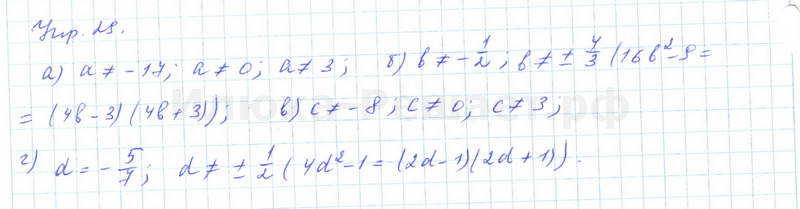 Упр. 29.
а) a ≠ -17; a ≠ 0; a ≠ 3; б) b ≠ -1/2; b ≠ ± 4/3 (16b²-9=
= (4b-3)(4b+3)); в) c ≠ -8; c ≠ 0; c ≠ 3;
г) d = -5/7; d ≠ ± 1/2 (4d²-1=(2d-1)(2d+1)).